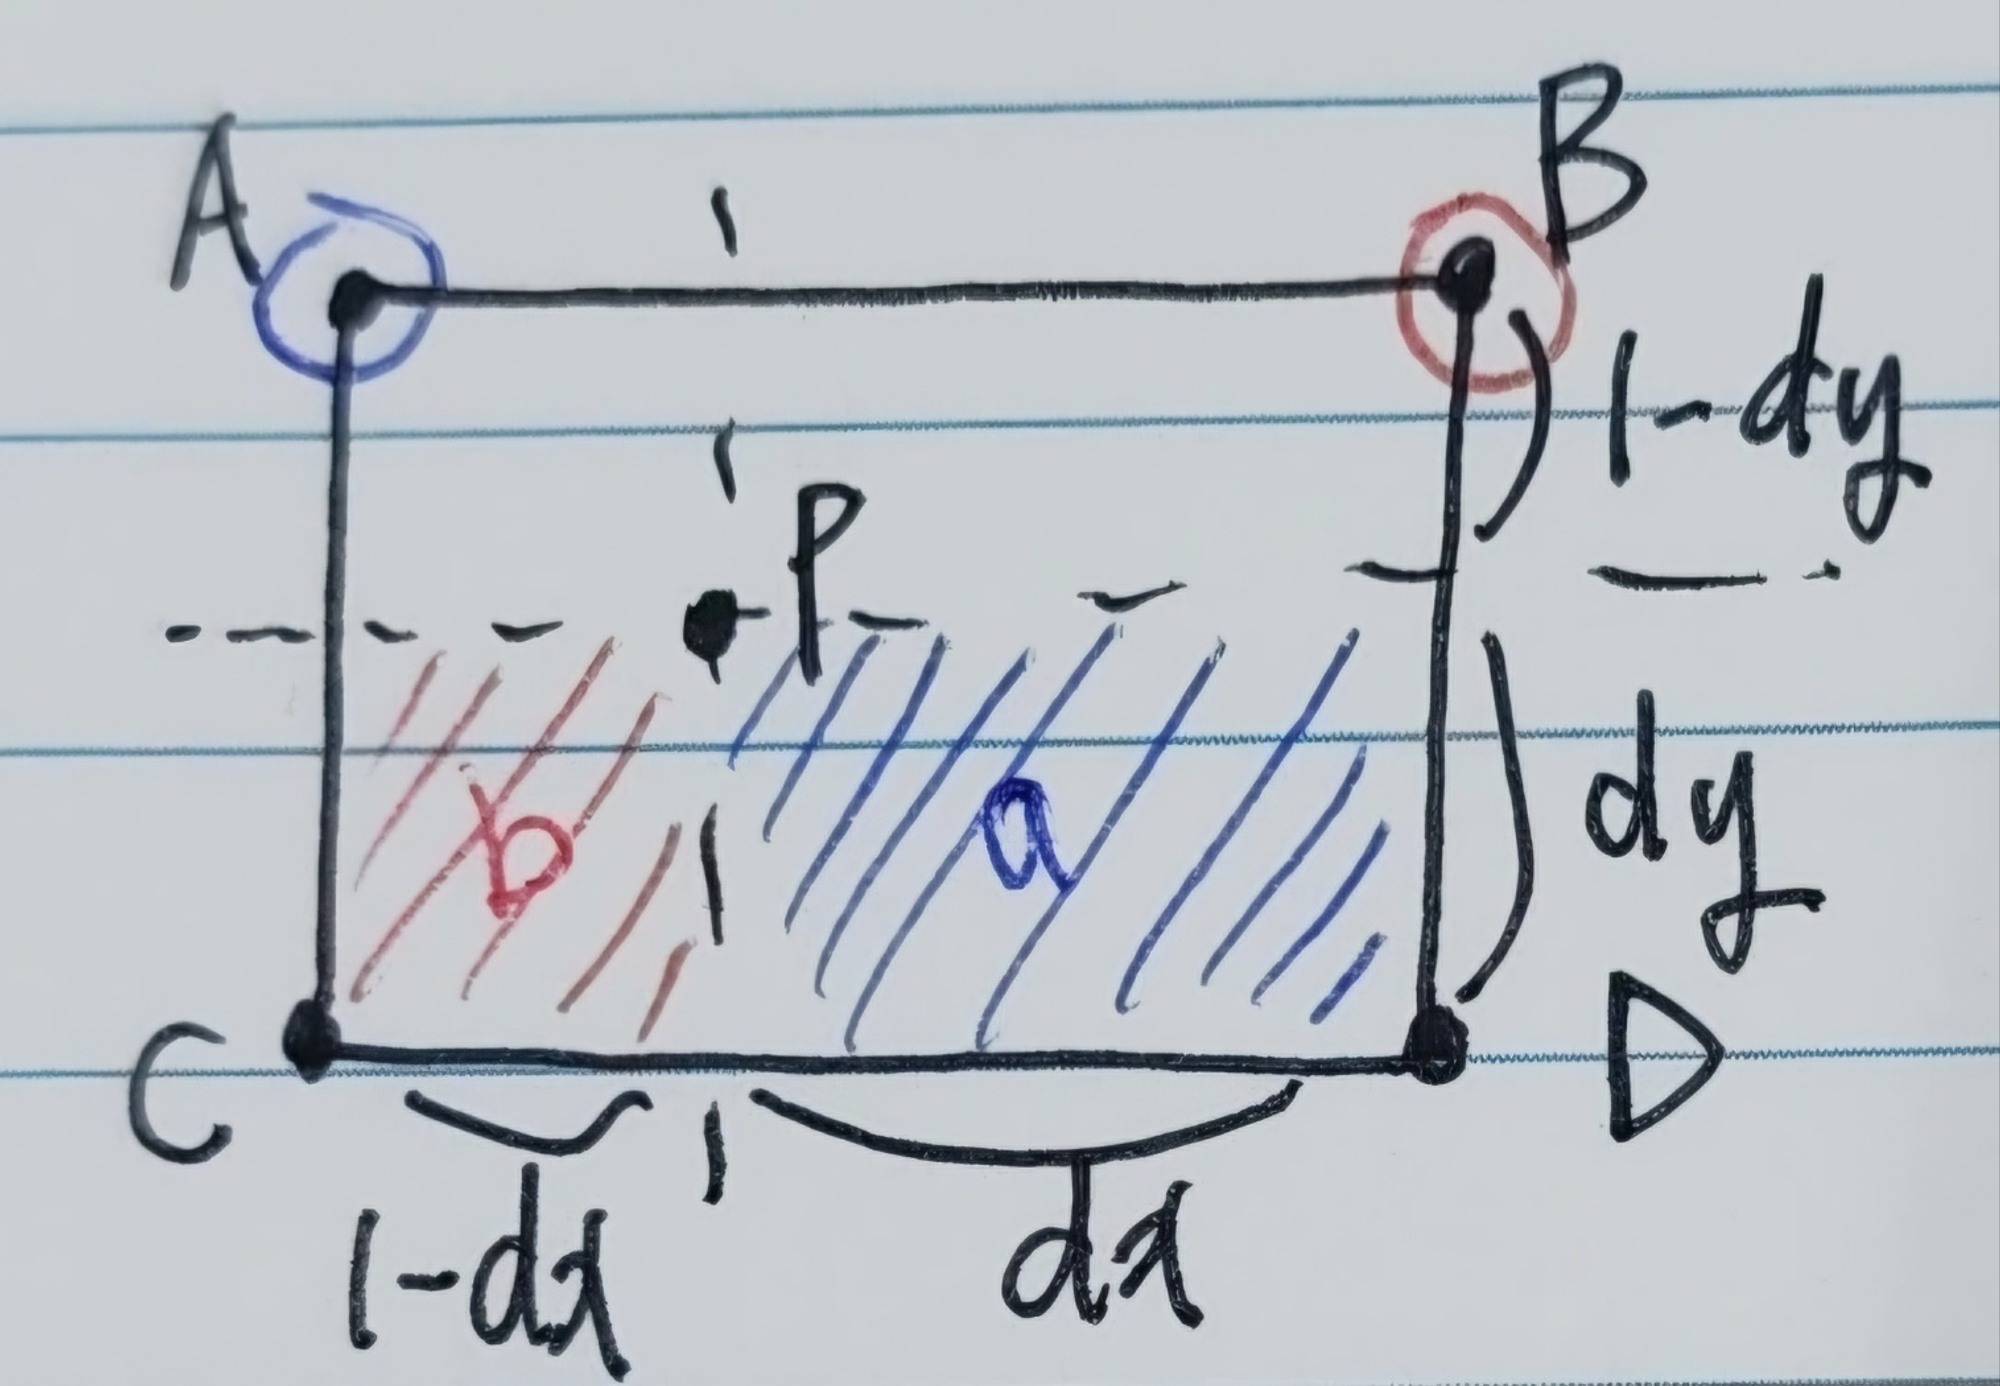 A
B
1-dy
P
b
a
dy
C
D
1-dx
dx